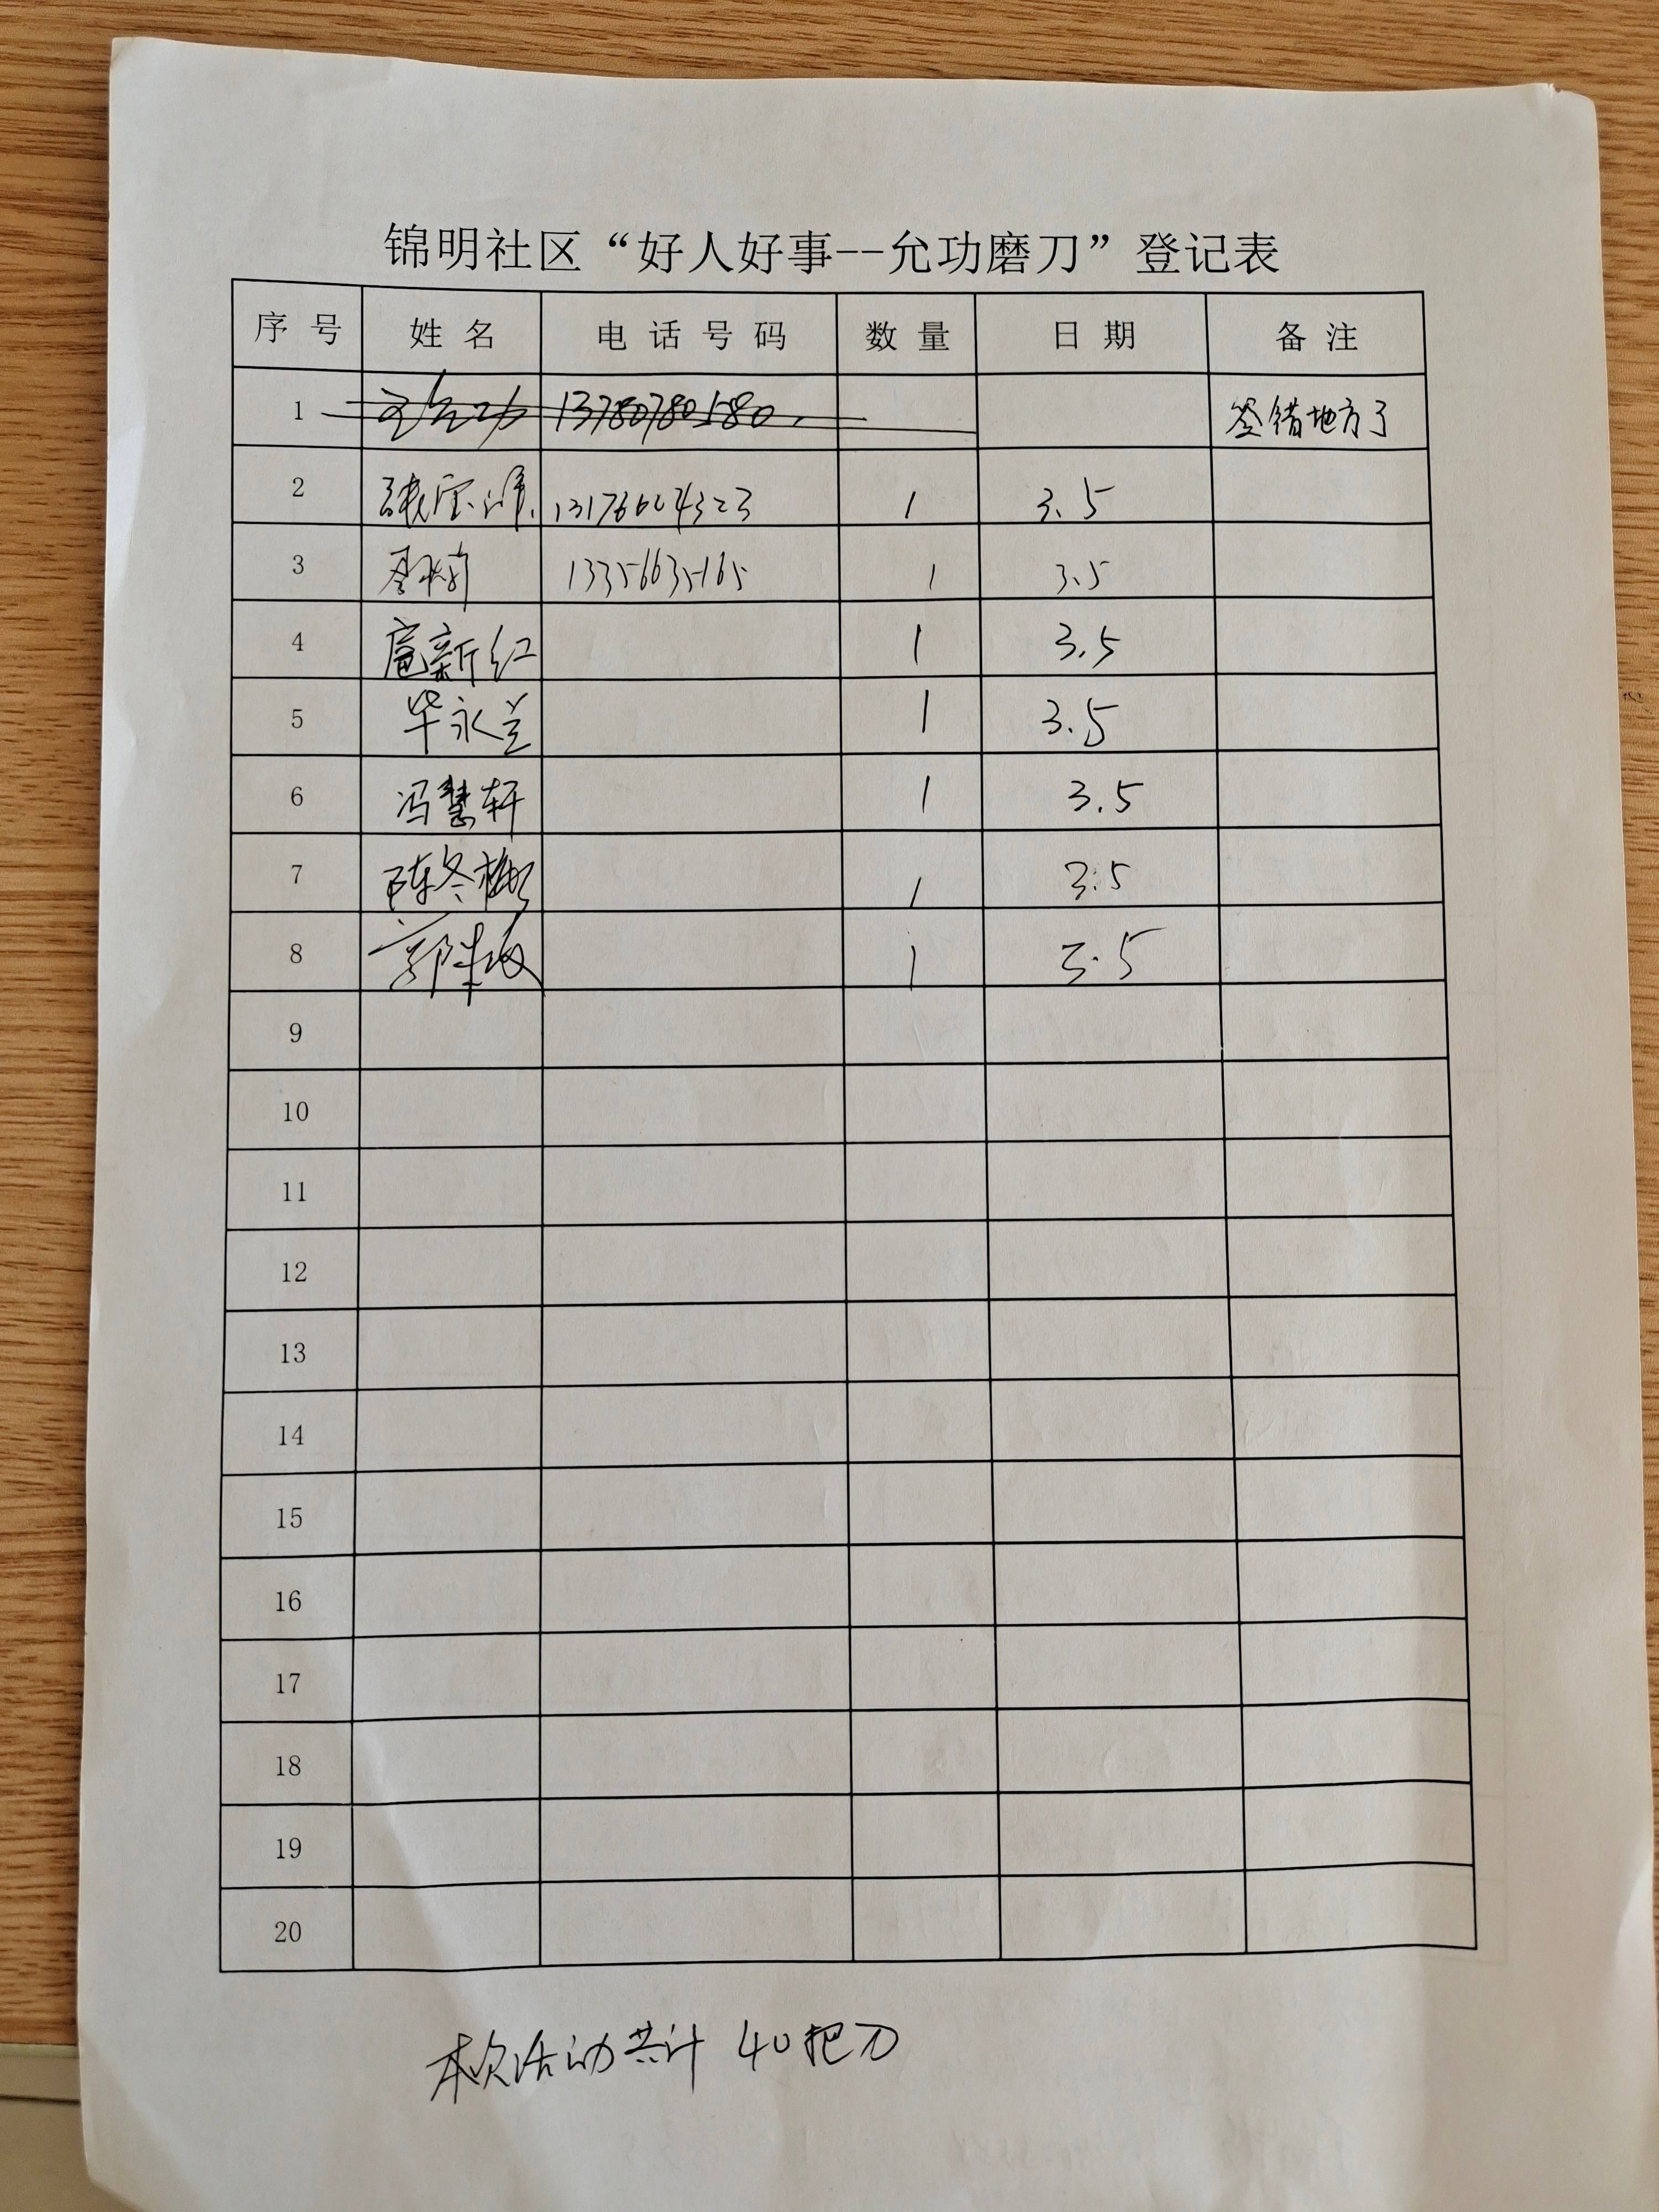 锦明社区“好人好事--允功磨刀”登记表
序号 姓名 电话号码 数量 日期 备注
1 13780780580 签错地方了
2 13176604323 1 3.5
3 13356635165 1 3.5
4 扈新红 1 3.5
5 毕永兰 1 3.5
6 冯慧轩 1 3.5
7 陈冬梅 1 3.5
8 郭 1 3.5
9
10
11
12
13
14
15
16
17
18
19
20
本次活动共计 40把刀